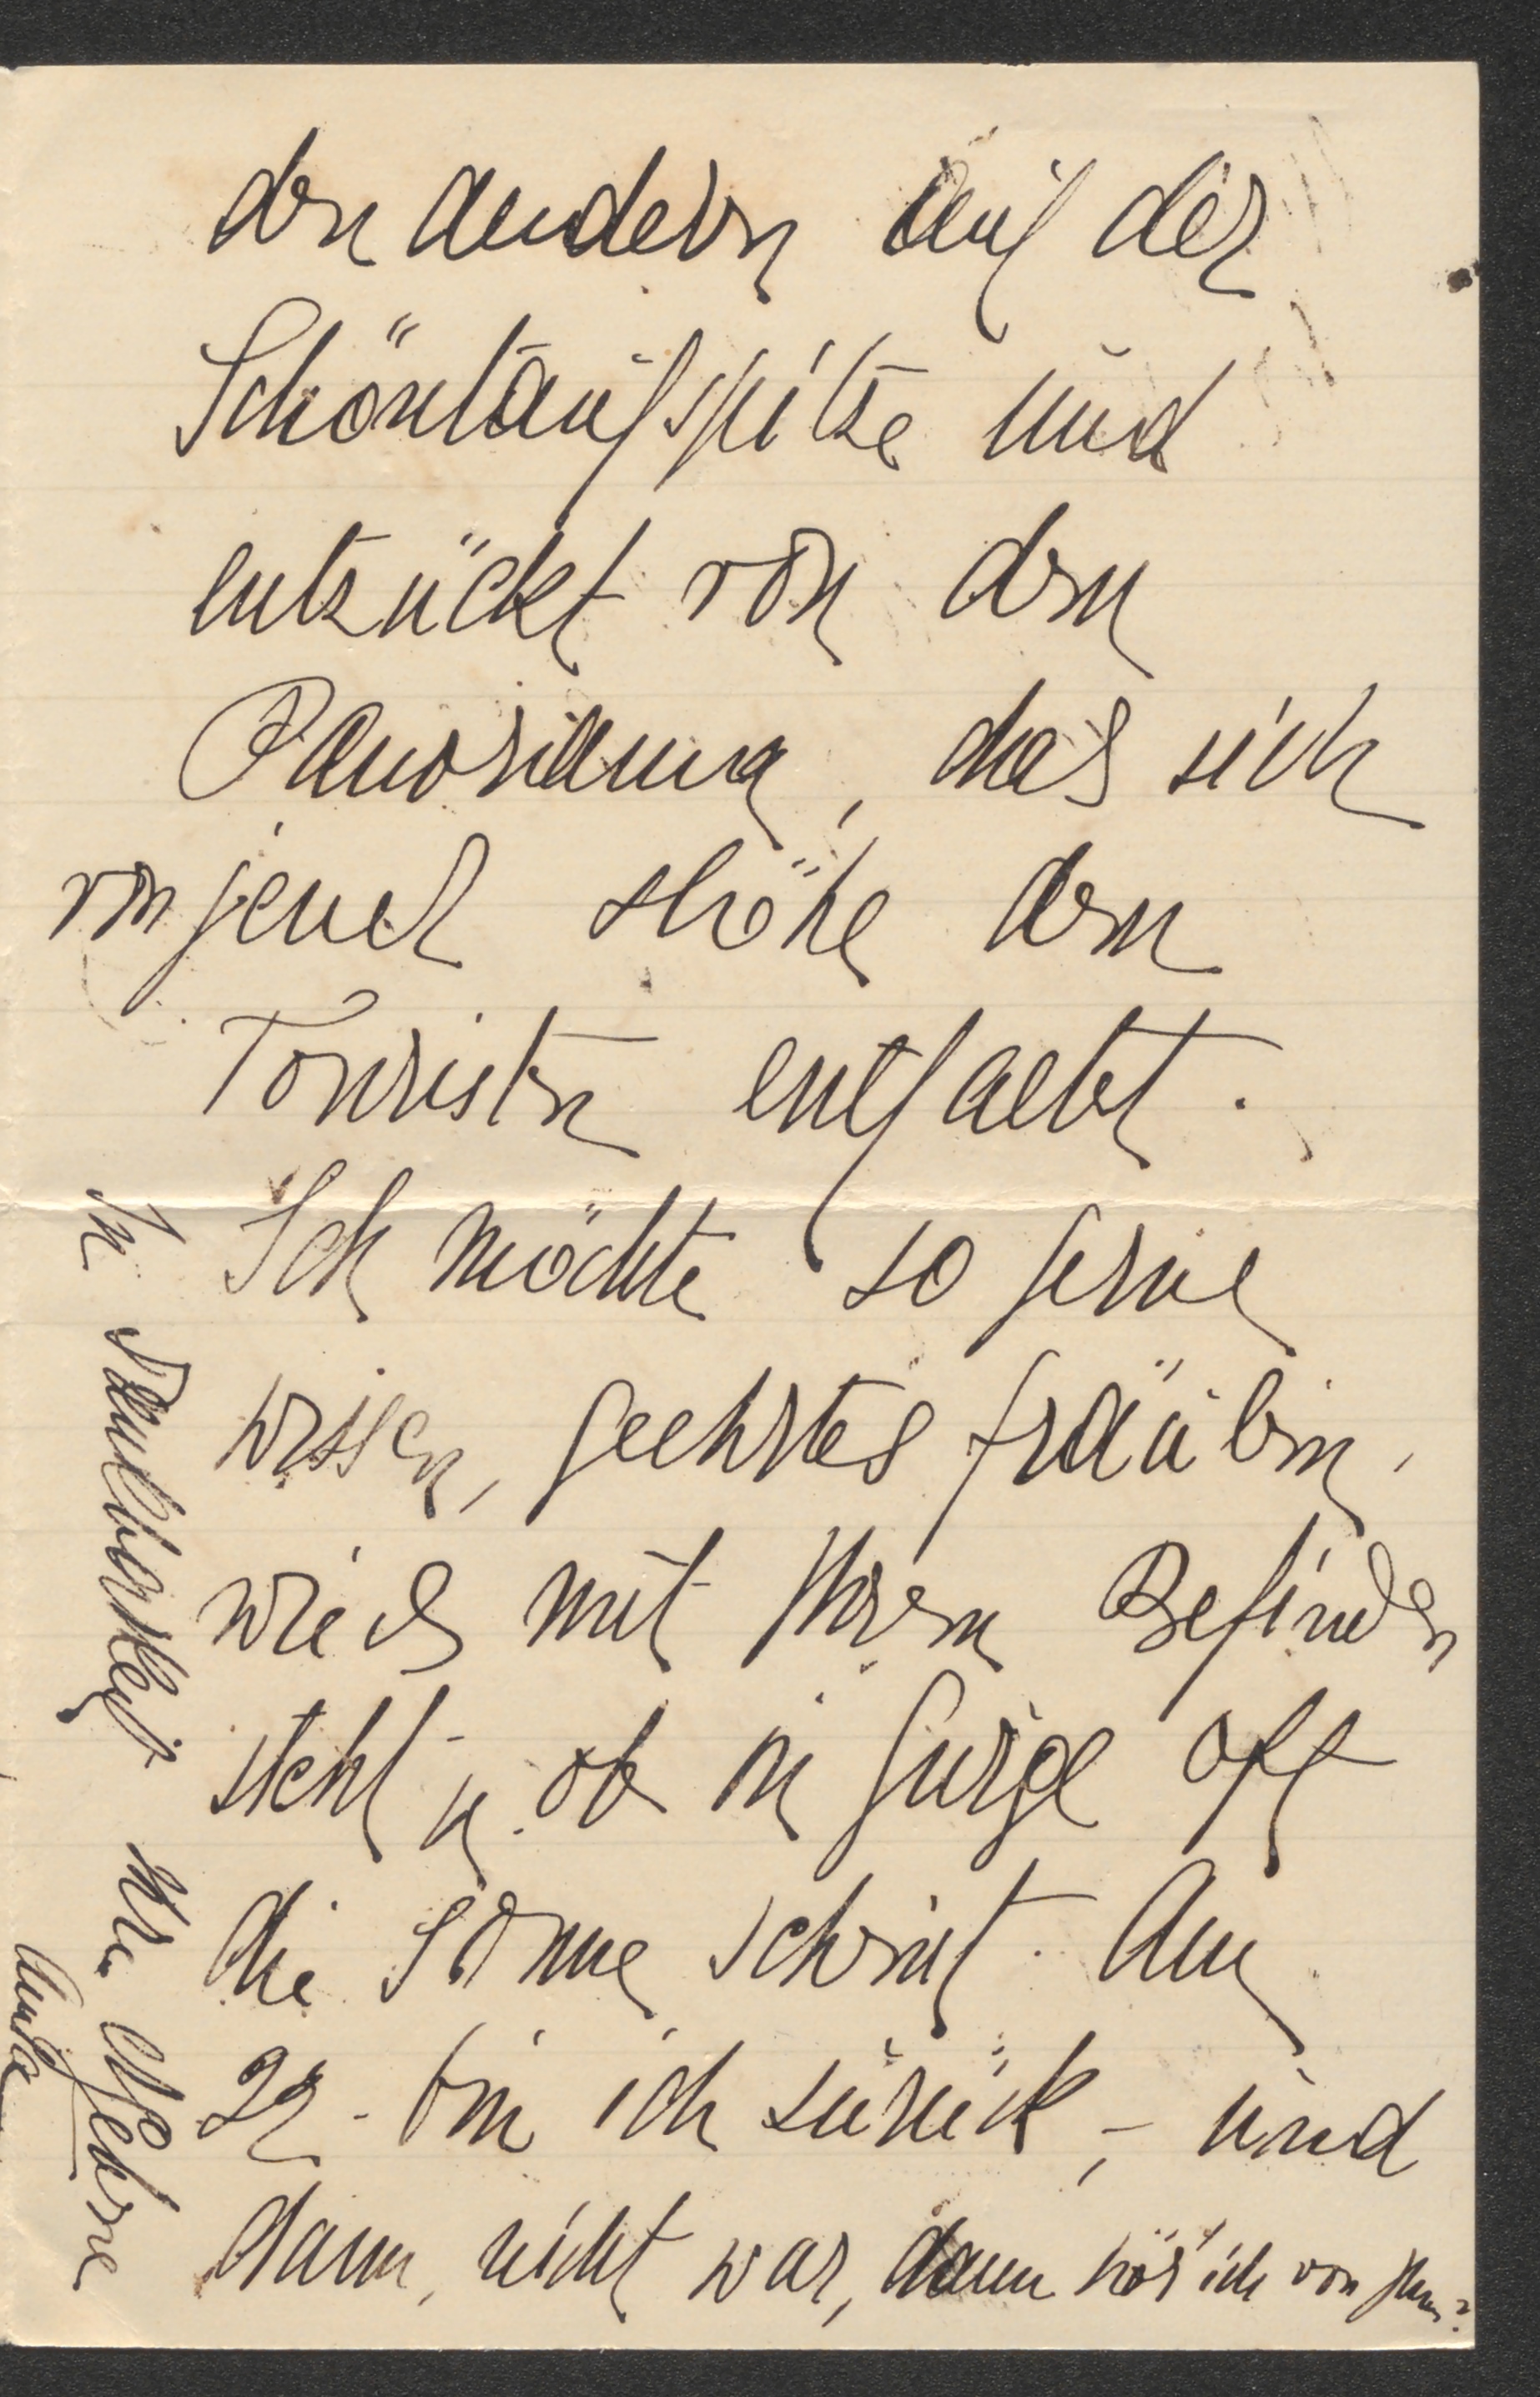 den andern auf der
Schöntaufspitze und
entzückt von dem
Panorama, das sich
von jener Höhe dem
Touristen entfaltet.
Ich möchte so gerne
wissen, geehrtes Fräulein,
wie es mit Ihrem Befinden
steht u. ob in Gurgl oft
die Sonne scheint. Am
22. bin ich zurück, – und
dann, nicht war, dann hör' ich von Ihnen?
In Dankbarkeit Ihre